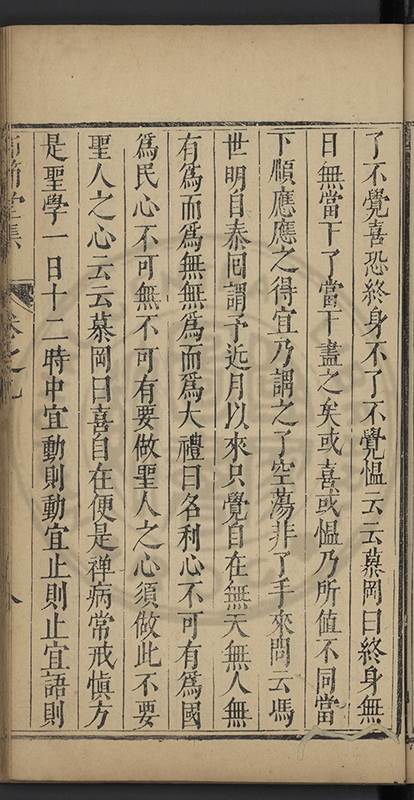 了不覺喜恐終身不了不覺慍云云慕岡曰終身無
日無當下了當下盡之矣或喜或慍乃所值不同當
下順應應之得宜乃謂之了空蕩非了手來問云馮
世明自泰囘謂予近月以來只覺自在無天無人無
有爲而爲無無爲而爲大禮曰名利心不可有爲國
爲民心不可無不可有要做聖人之心須做此不要
聖人之心云云慕岡曰喜自在便是禅病常戒慎方
是聖學一日十二時中宜動則動宜止則止宜語則
集 卷之九 八